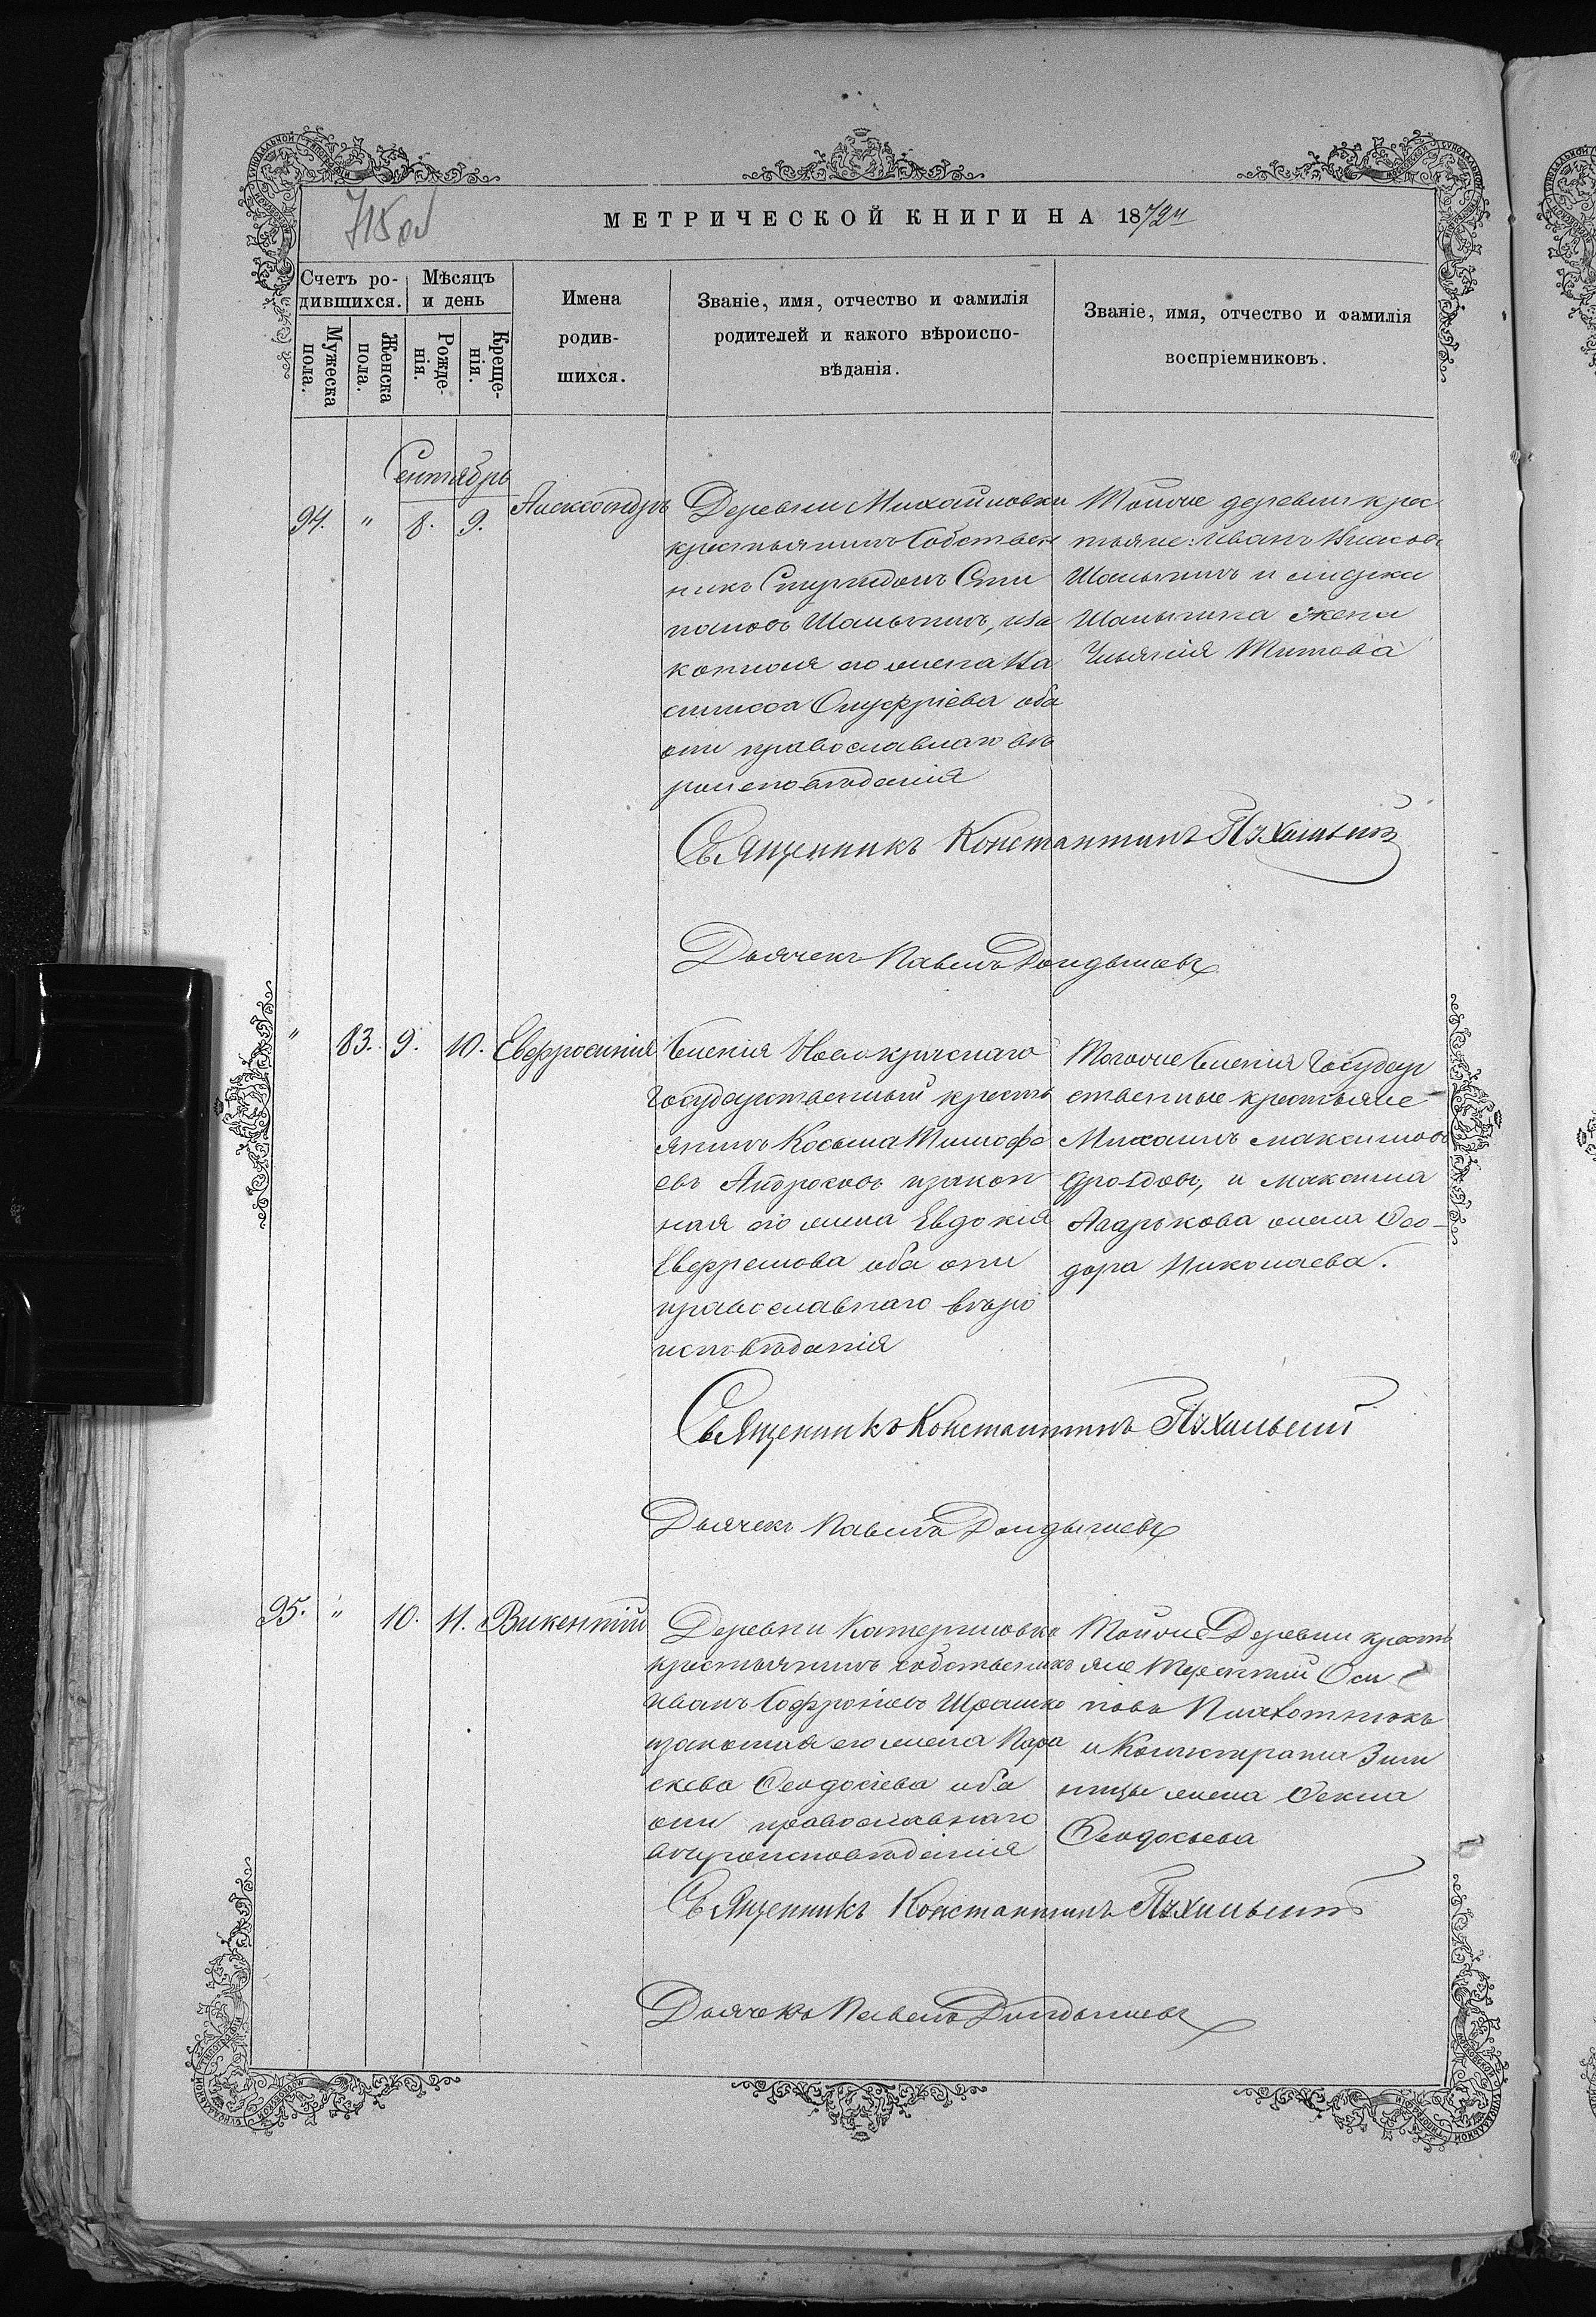 715 об
МЕТРИЧЕСКОЙ КНИГИ НА 1872 г
Счетъ ро-
дившихся.
Мужеска
пола.
Женска
пола.
Мѣсяцъ
и день
Рожде-
нія.
Креще-
нія.
Имена
родив-
шихся.
Званіе, имя, отчество и фамилія
родителей и какого вѣроиспо-
вѣданія.
Званіе, имя, отчество и фамилія
воспріемниковъ.
Сентябрь
94. " 8. 9. Александръ
Деревни Михайловки
крестьянинъ собствен
никъ Спиридонъ Сти
пановъ Шалыгинъ, иза
конная его жена Ва
силисса Онуфріева оба
они православнаго вѣ
роисповѣданія
Тойже деревни крес
тьяне: Иванъ Власовъ
Шалыгинъ и
Шалыгина жена
Титова
Священникъ Константинъ
Дьячекъ Павелъ
" 83. 9. 10. Евфросинія
Селенія Новокраснаго
Государственный кресть
янинъ Косьма Тимофе
евъ изакон
ная его жена Евдокія
Евфремова оба они
православнаго вѣро
исповѣданія
Тогоже Селенія Государ
ственные крестьяне
Михаилъ Максимовъ
Дроздовъ, и Максима
Агаркова жена Ѳео-
дора Николаева.
Священникъ Константинъ
Дьячекъ Павелъ
95. " 10. 11. Викентій
Деревни Катериновки
крестьянинъ собственикъ
Иванъ Софроніевъ
изаконная его жена Пара
скева Ѳеодосіева оба
они православнаго
вѣроисповѣданія
Тойже Деревни кресть
яне Терентій Оси
повъ Плахотнюкъ
и Кондрата Зин
жена Ѳекла
Ѳеодосьева
Священникъ Константинъ
Дьячекъ Павелъ